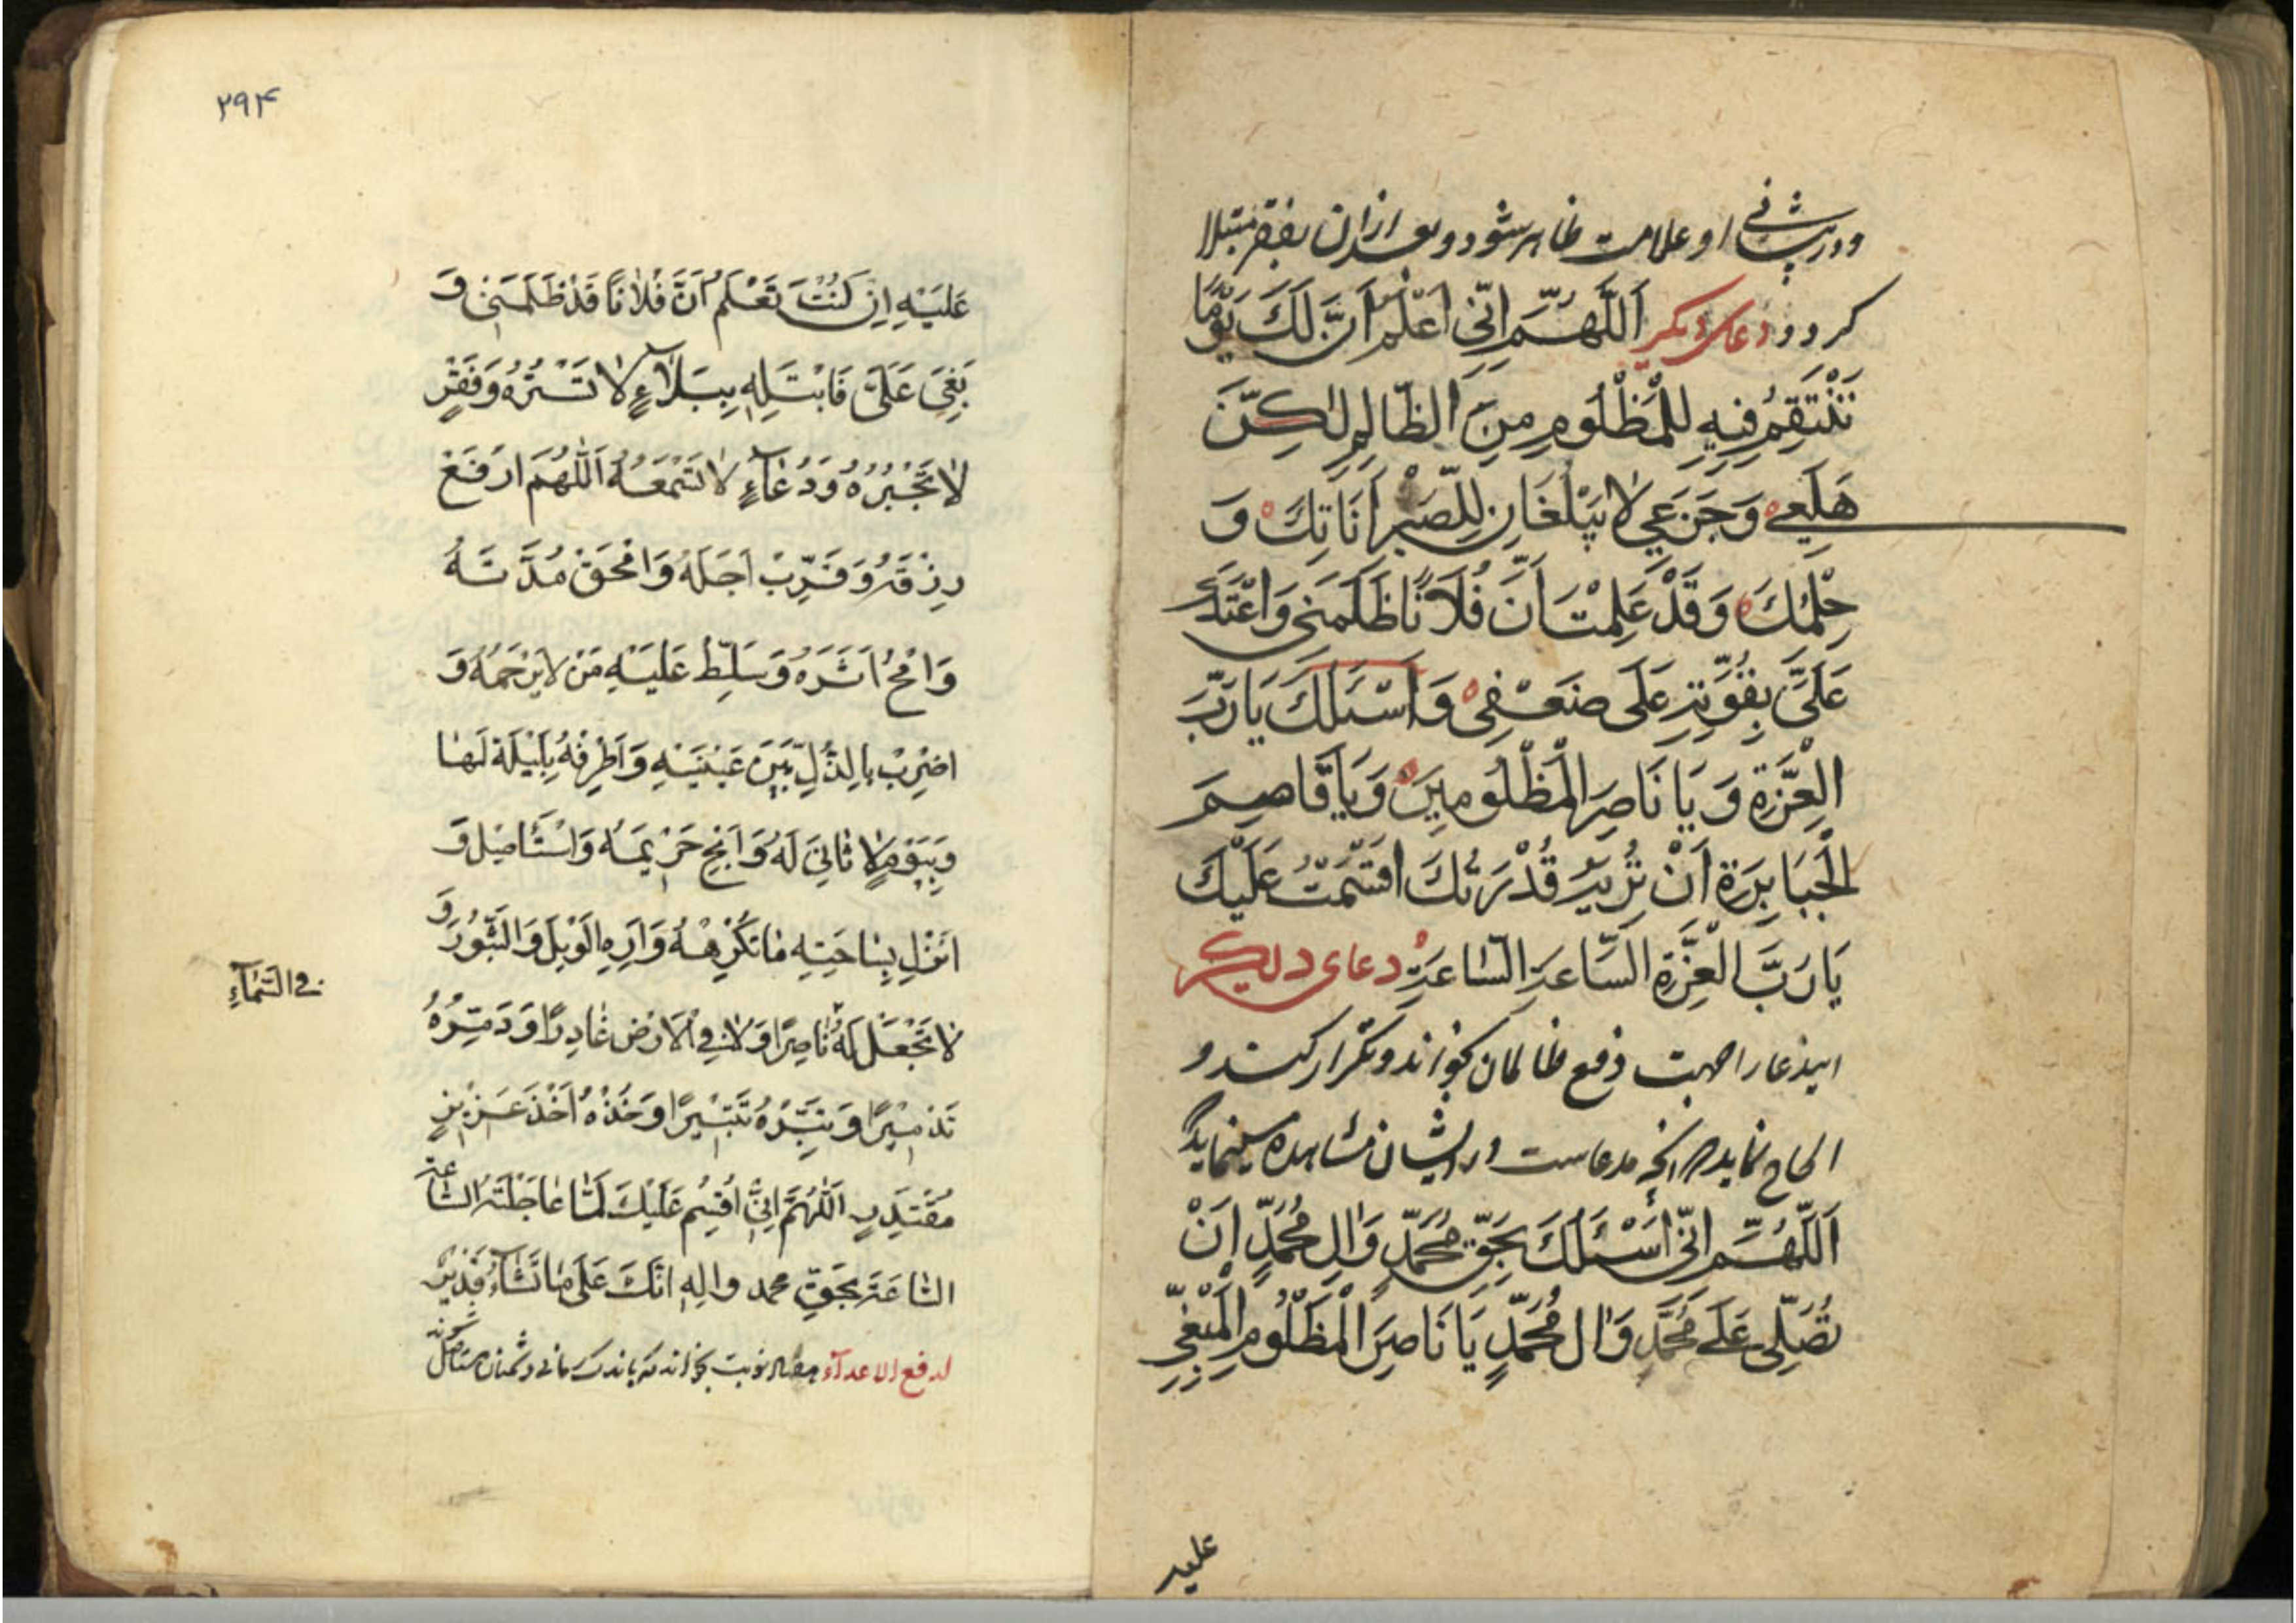 ودر پیشانی او علامت ظاهر شود و بعد از ان بفقر مبتلا
کردد و دعای دیکر اَللّٰهُمَّ اِنّی اَعْلَمُ اَنَّ لَكَ يَوْمًا
تَنْتَقِمُ فِيهِ لِلْمَظْلُومِ مِنَ الظّالِمِ لٰكِنَّ
هَلَعِي وَجَزَعِي لا يَبْلُغَانِ لِلصَّبْرِ اَنَاتِكَ وَ
حِلْمِكَ وَقَدْ عَلِمْتَ اَنَّ فُلَانًا ظَلَمَنِي وَاعْتَدَ
عَلَىَّ بِقُوَّتِهِ عَلَى ضَعْفِى وَاَسْئَلُكَ يَا رَبَّ
الْعِزَّةِ وَ يَا نَاصِرَ الْمَظْلُومِينَ وَ يَا قَاصِمَ
الْجَبَابِرَةِ اَنْ تُرِيَهُ قُدْرَتَكَ اَقْسَمْتُ عَلَيْكَ
يَا رَبَّ الْعِزَّةِ السَّاعَةِ السَّاعَةِ دعای دیکر
ایندعا را جهت دفع ظالمان بخواند و تکرار کند و
الحاح نماید هر انچه مدعاست در ایشان مشاهده مینماید
اَللّٰهُمَّ اِنّی اَسْئَلُكَ بِحَقِّ مُحَمَّدٍ وَالِ مُحَمَّدٍ اَنْ
تُصَلِّى عَلَى مُحَمَّدٍ وَالِ مُحَمَّدٍ يَا نَاصِرَ الْمَظْلُومِ الْمَبْغِيِّ
علیه
۲۹۴
عَلَيْهِ اِن كُنْتَ تَعْلَمُ اَنَّ فُلَانًا قَدْ ظَلَمَنِى وَ
بَغٰى عَلَىَّ فَابْتَلِهِ بِبَلَاءٍ لا تَسْتُرُهُ وَفَقْرٍ
لا تَجْبُرُهُ وَدُعَاءٍ لا تَسْمَعُهُ اَللّٰهُمَّ ارْفَعْ
رِزْقَهُ وَ قَرِّبْ اَجَلَهُ وَامْحَقْ مُدَّتَهُ
وَامْحُ اَثَرَهُ وَسَلِّطْ عَلَيْهِ مَنْ لا يَرْحَمُهُ وَ
اضْرِبْ بِالذُّلِّ بَيْنَ عَيْنَيْهِ وَاَطْرِقْهُ بِلَيْلَةٍ لَهٰا
وَبِيَوْمٍ لا ثانِىَ لَهُ وَاَبِحْ حَرِيمَهُ وَاسْتَأْصِلْ وَ
انْزِلْ بِنٰاحَتِهِ مٰا تَكْرَهُهُ وَاَرِهِ الْوَيْلَ وَالثُّبُورَ وَ
لا تَجْعَلْ لَهُ نٰاصِرًا وَلا فِى الْاَرْضِ عٰاذِرًا وَدَمِّرْهُ
فى السَّمٰآءِ
تَدْمِيْرًا وَتَبِّرْهُ تَتْبِيْرًا وَخُذْهُ اَخْذَ عَزِيزٍ
مُقْتَدِرٍ اَللّٰهُمَّ اِنِّى اُقْسِمُ عَلَيْكَ لَمّٰا عٰاجَلْتَهُ السّٰاعَةَ
السّٰاعَةَ بِحَقِّ محمد والِهِ انَّكَ عَلٰى مٰا تَشٰآءُ قَدِيْرٌ
لدفع الاعداء نوبت بخواند که باندک زمانی دشمنان مستاصل
شوند